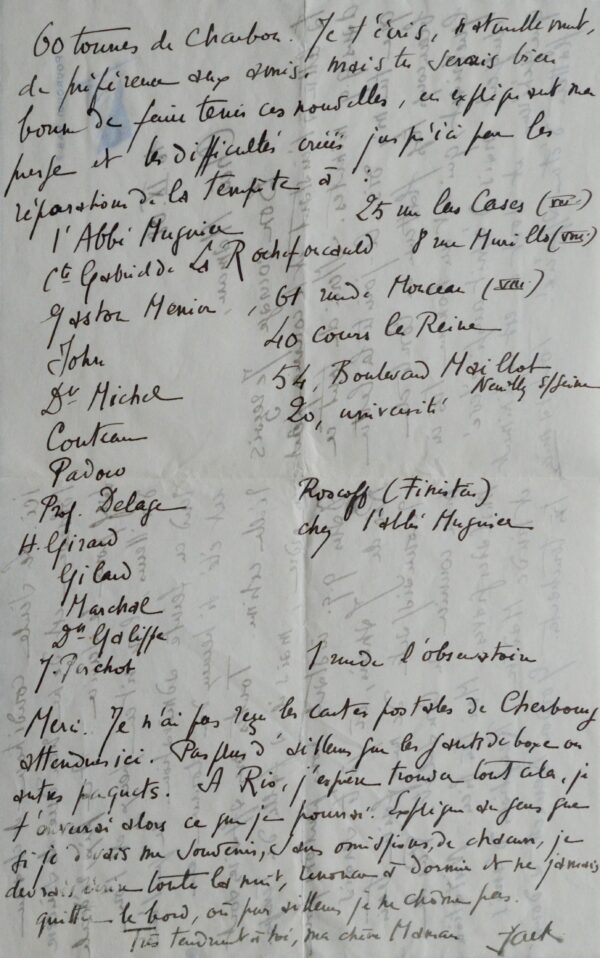 60 tonnes de Charbon. Je t'écris, naturellement,
de préférence aux amis. Mais tu serais bien
bonne de faire tenir ces nouvelles, en expliquant ma
presse et les difficultés créées jusqu'ici par les
réparations de la tempête à :
l'Abbé Mugnier 25 rue Las Cases (VIIe)
Cte Gabriel de La Rochefoucauld 8 rue Murillo (VIIIe)
Gaston Menier, 61 rue de Monceau (VIII)
John 40 cours la Reine
Dr Michel 54, Boulevard Maillot Neuilly s/Seine
Couteau 20, université
Padoue
Prof. Delage Roscoff (Finistère)
H. Girard chez l'abbé Mugnier
Gilard
Marchal
Dr Galippe
J. Perchot 1 rue de l'observatoire
Merci. Je n'ai pas reçu les cartes postales de Cherbourg
attendues ici. Pas plus d'ailleurs que les gants de boxe ou
autres paquets. A Rio, j'espère trouver tout cela, je
t'enverrai alors ce que je pourrai. Explique aux gens que
si je devais me souvenir, sans omissions, de chacun, je
devrais écrire toute la nuit, renoncer à dormir et ne jamais
quitter le bord, où par ailleurs je ne chôme pas.
Très tendrement à toi, ma chère Maman Jack